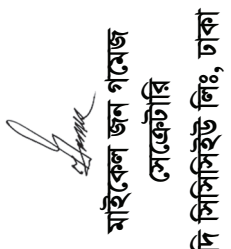 মাইকেল জন গমেজ
সেক্রেটারি
দি সিসিসিইউ লিঃ, ঢাকা